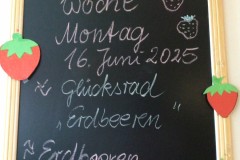 Woche
Montag
16. Juni 2025
Glücksrad
„Erdbeeren"
Erdbeeren